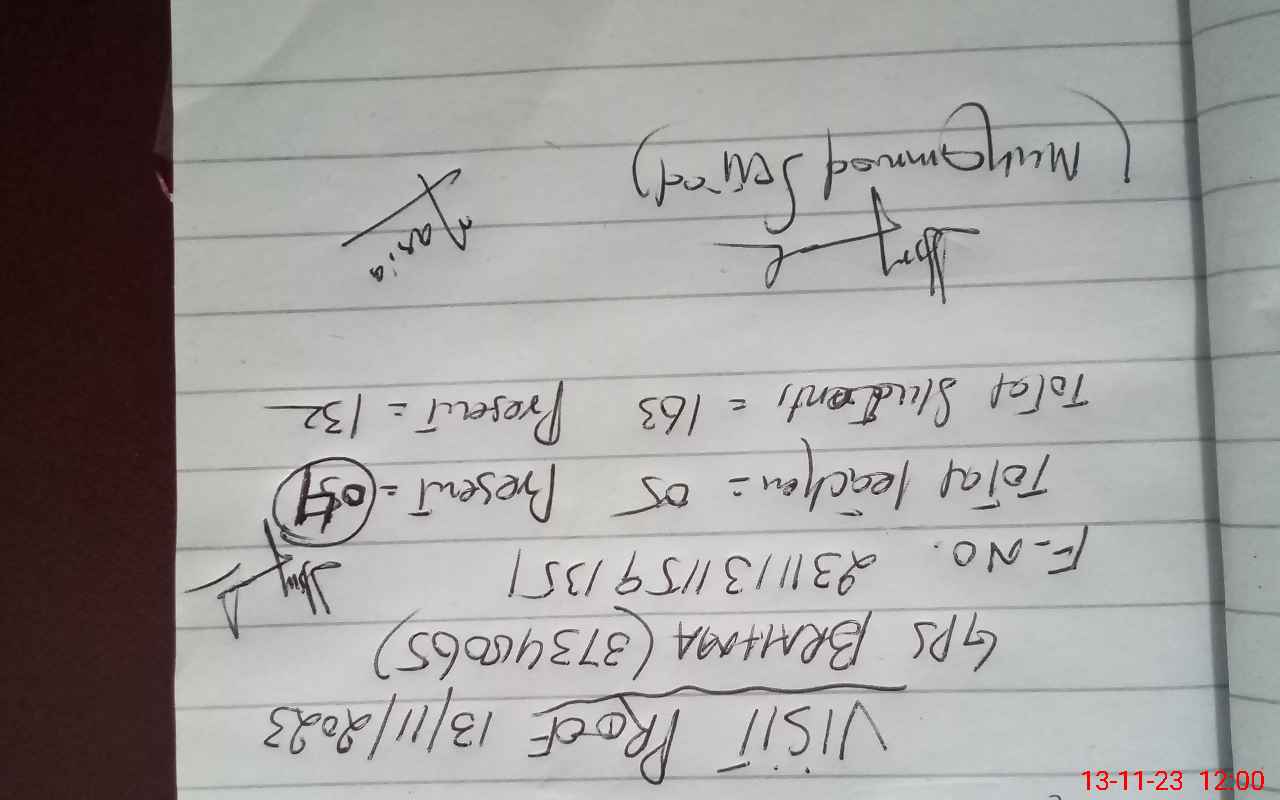 VISIT PROOF 13/11/2023
GPS BRAHMA (37340065)
F-NO. 23111311591351
Total teacher = 05 Present = 04
Total Students = 163 Present = 132
Maria
(Muhammad Saeed)
13-11-23 12:00